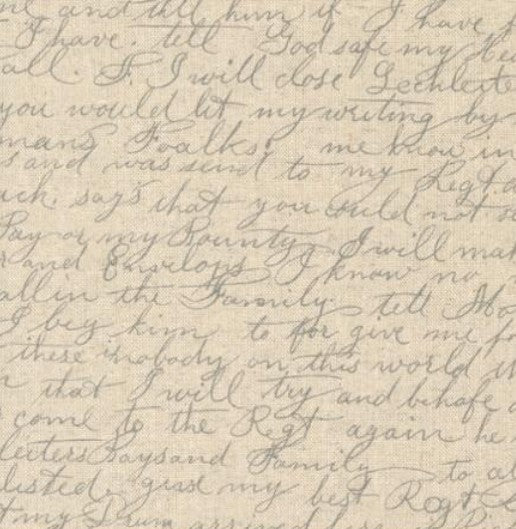 and tell him if I have
I have. tell God safe my
all. F. I will close Lechleite
you would let my writing by
mans Foalks. me know in
s and was send to my Regt
ach. says that you could not se
Pay or my Bounty, I will mak
r and Envelops I know no
all in the Family. tell Mo
I beg him to for give me fo
there is nobody on this world
that I will try and behafe
come to the Regt again he
leiters Says and Family to al
listed, give my best Regt
t my Drum